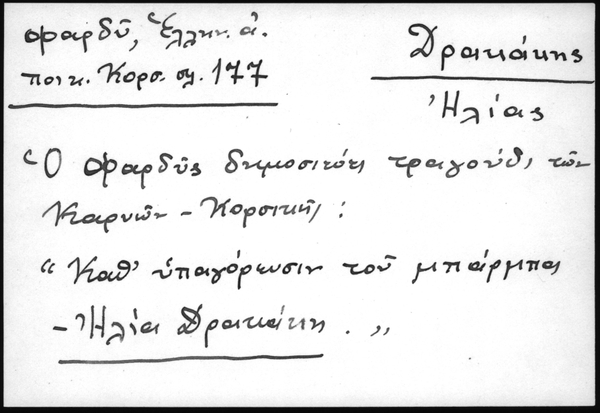 Φαρδῦ, Ἑλλην. ἀ.
ποικ. Κορσ. σλ. 177
Δρακάκης
Ἠλίας
Ὁ Φαρδῦς δημοσιεύει τραγούδι τῶν
Καρυῶν - Κορσικῆς:
"Καθ' ὑπαγόρευσιν τοῦ μπάρμπα
- Ἠλία Δρακάκη."